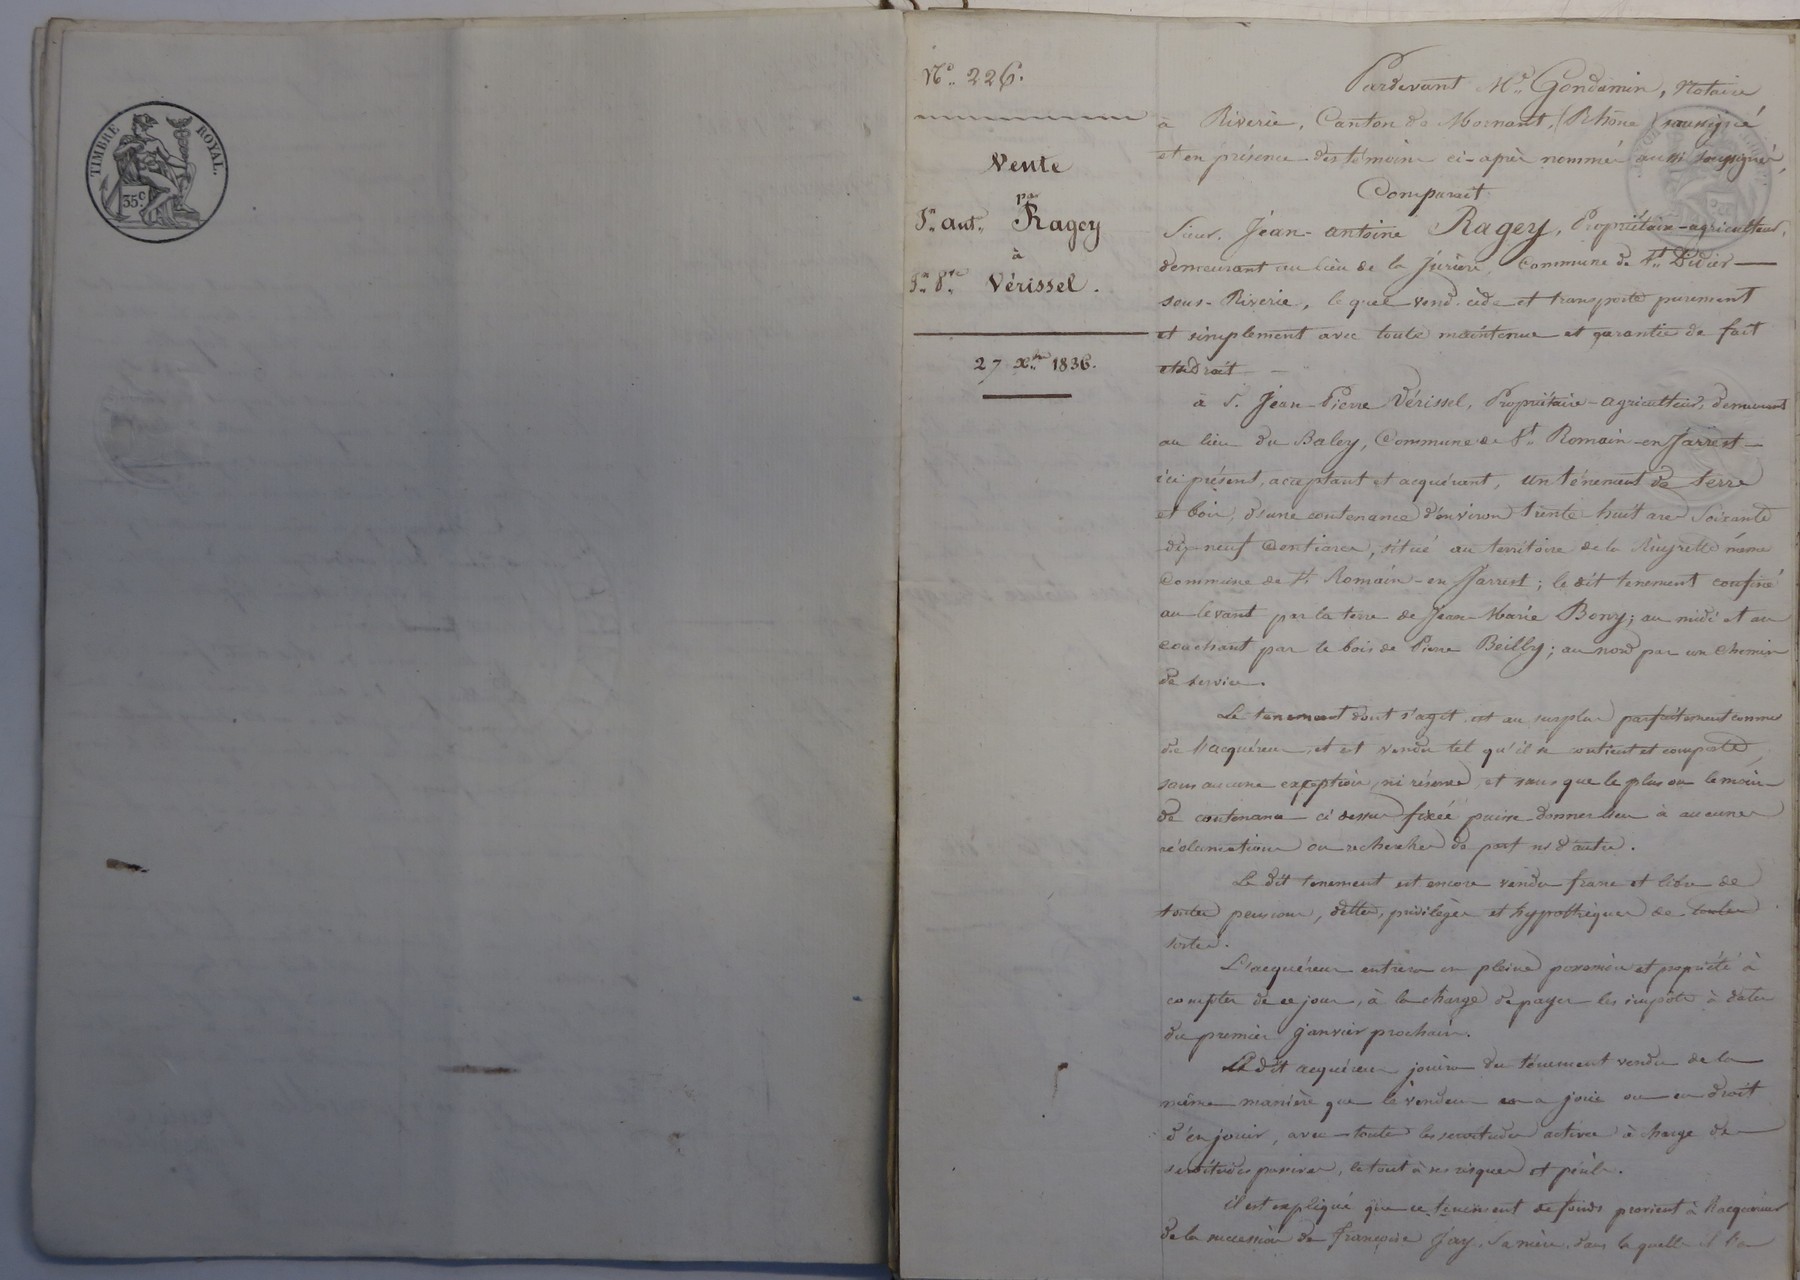 TIMBRE ROYAL.
35 C.
No. 226.
Vente
par
Jn. Ant. Ragey
à
Jn. Pre. Vérissel.
27 Xbre 1836.
Pardevant Me. Gondamin, Notaire
à Riverie, Canton de Mornant, (Rhône) soussigné
et en présence des témoins ci-après nommés aussi soussignés,
Comparait
Sieur Jean-antoine Ragey, Propriétaire-agriculteur,
demeurant au lieu de la Jurière, Commune de St. Didier
sous-Riverie, lequel vend, cède et transporte purement
et simplement avec toute maintenue et garantie de fait
et de droit
à S. Jean-Pierre Vérissel, Propriétaire-agriculteur, demeurant
au lieu du Baley, Commune de St. Romain-en-Jarrest
ici présent, acceptant et acquérant, un ténement de terre
et bois, d'une contenance d'environ trente-huit ares soixante
dix-neuf centiares, situé au territoire de la même
Commune de St Romain-en-Jarrest; le dit tenement confiné
au levant par la terre de Jean-Marie Bony; au midi et au
couchant par le bois de Pierre Beilly; au nord par un chemin
de service.
Le tenement dont s'agit est au surplus parfaitement connu
de l'acquéreur, et est vendu tel qu'il se contient et comporte,
sans aucune exception, ni réserve, et sans que le plus ou le moins
de contenance ci dessus fixée puisse donner lieu à aucunes
réclamations ou recherches de part ni d'autre.
Le dit tenement est encore vendu franc et libre de
toutes pensions, dettes, privilèges et hypothèques de toutes
sortes.
L'acquéreur entrera en pleine possession et propriété à
compter de ce jour, à la charge de payer les impôts à dater
du premier janvier prochain.
Le dit acquéreur jouira du ténement vendu de la
même manière que le vendeur en a joui ou eu droit
d'en jouir, avec toutes les servitudes actives à charge de
servitudes passives, le tout à ses risques et périls.
il est expliqué que ce tenement de fonds provient à l'acquéreur
de la succession de Françoise Jay, sa mère, dans laquelle il l'a